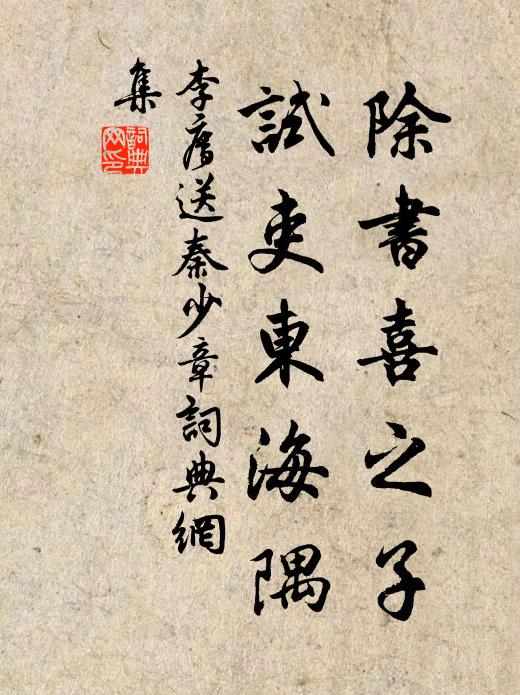 除書喜之子
試吏東海隅
李廌送秦少章詞典網
集
詞典
网印